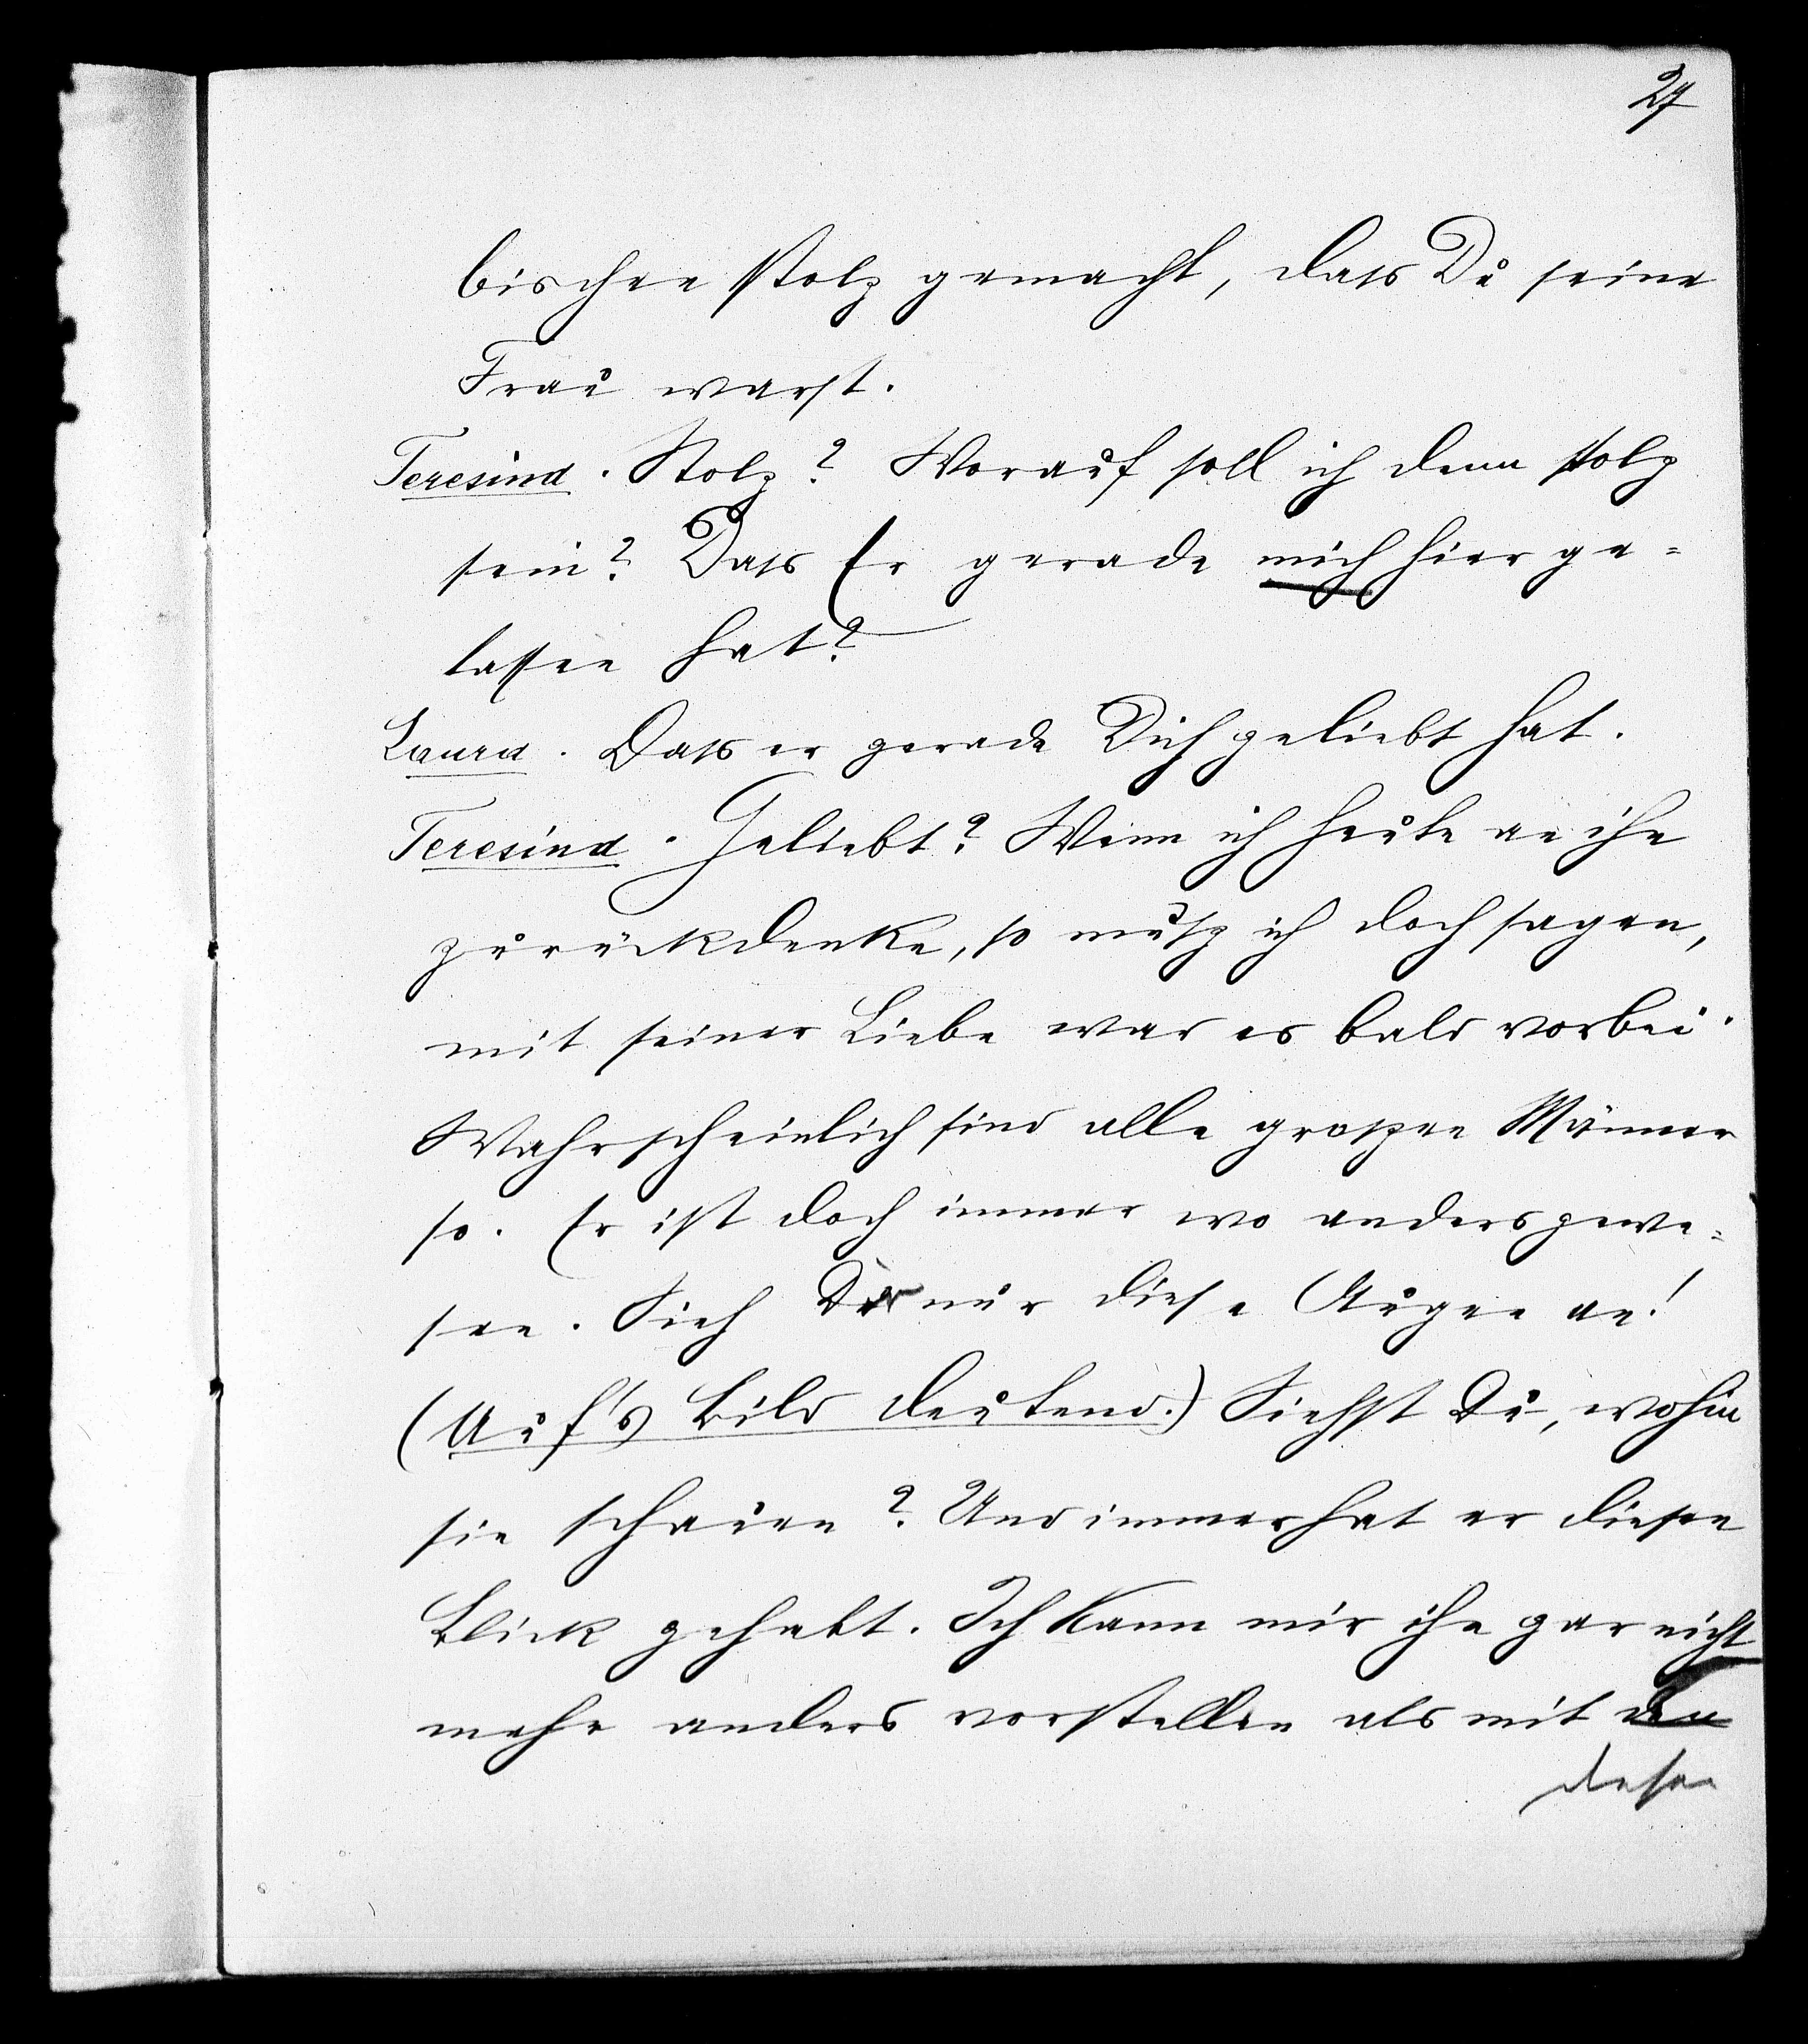 27
bischen stolz gemacht, dass Du seine
Frau warst.
Teresina. Stolz? Worauf soll ich denn stolz
sein? Dass Er gerade mich hier ge=
lassen hat?
Laura. Dass er gerade Dich geliebt hat.
Teresina. Geliebt? Wenn ich heute an ihn
zurückdenke, so muß ich doch sagen,
mit seiner Liebe war es bald vorbei.
Wahrscheinlich sind alle großen Männer
so. Er ist doch immer wo anders gewe=
sen. Sieh Dir nur diese Augen an!
(Auf's Bild deutend.) Siehst Du, wohin
sie schauen? Und immer hat er diesen
Blick gehabt. Ich kann mir ihn gar nicht
mehr anders vorstellen als mit den
diesen